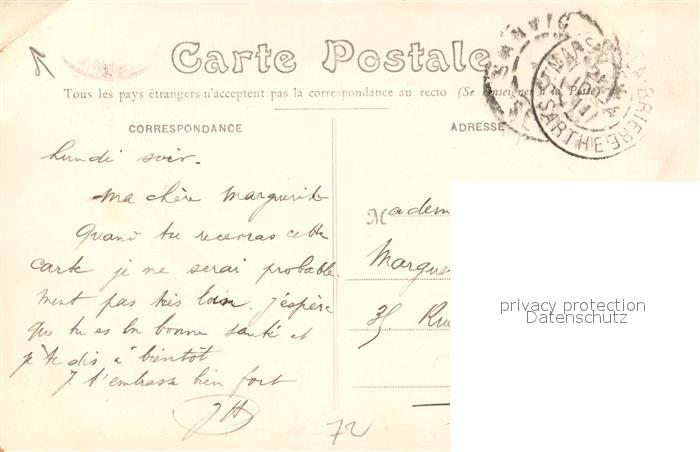 Carte Postale
Tous les pays étrangers n'acceptent pas la correspondance au recto (Se renseigner à la Poste)
CORRESPONDANCE
lundi soir.
Ma chère Marguerite
Quand tu recevras cette
carte je ne serai probable
ment pas très loin. J'espère
que tu es en bonne santé et
je te dis à bientôt
J t'embrasse bien fort
JH
72
ADRESSE
Madem
Margue
35 Rue
SANVIC
ST MARS LA BRIERE
SARTHE
privacy protection
Datenschutz